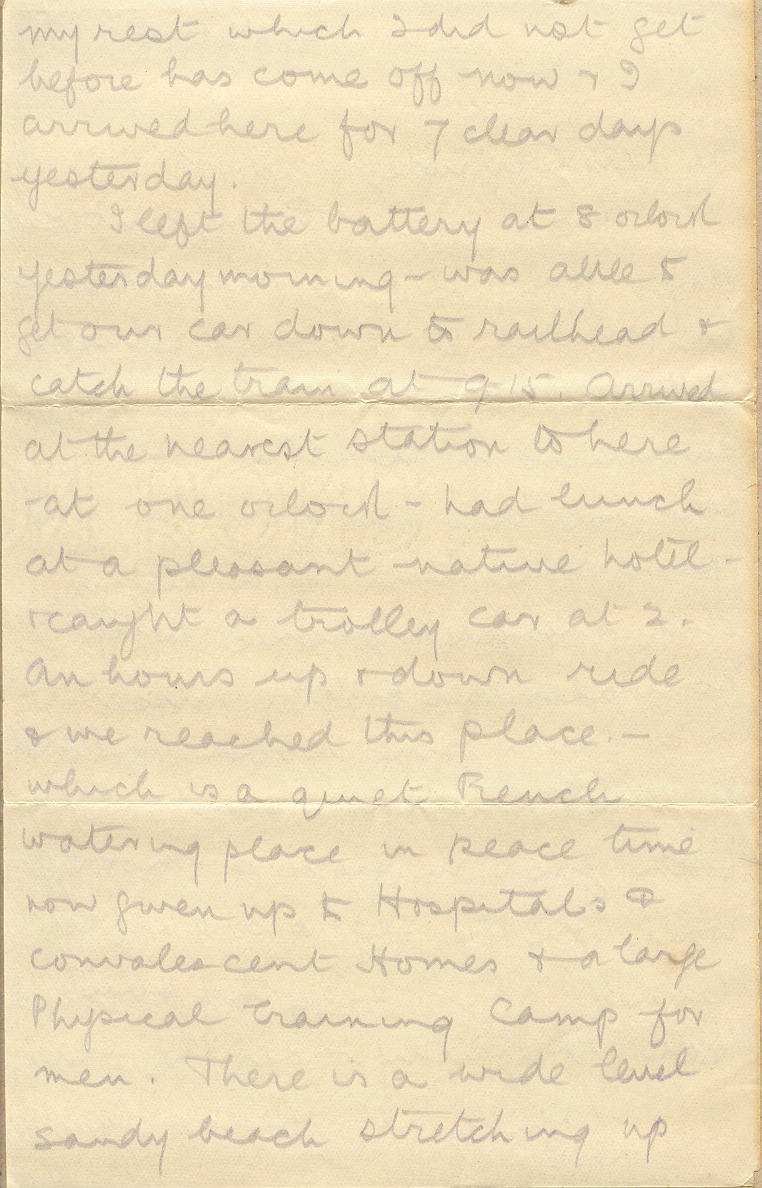 my rest which I did not get
before has come off now & I
arrived here for 7 clear days
yesterday.
I left the battery at 8 oclock
yesterday morning - was able to
get our car down to railhead &
catch the train at 9-15. Arrived
at the nearest station to here
-at one oclock - had lunch
at a pleasant native hotel -
& caught a trolley car at 2.
An hours up & down ride
& we reached this place. -
which is a quiet French
watering place in peace time
now given up to Hospitals &
convalescent Homes & a large
Physical Training Camp for
men. There is a wide level
sandy beach stretching up